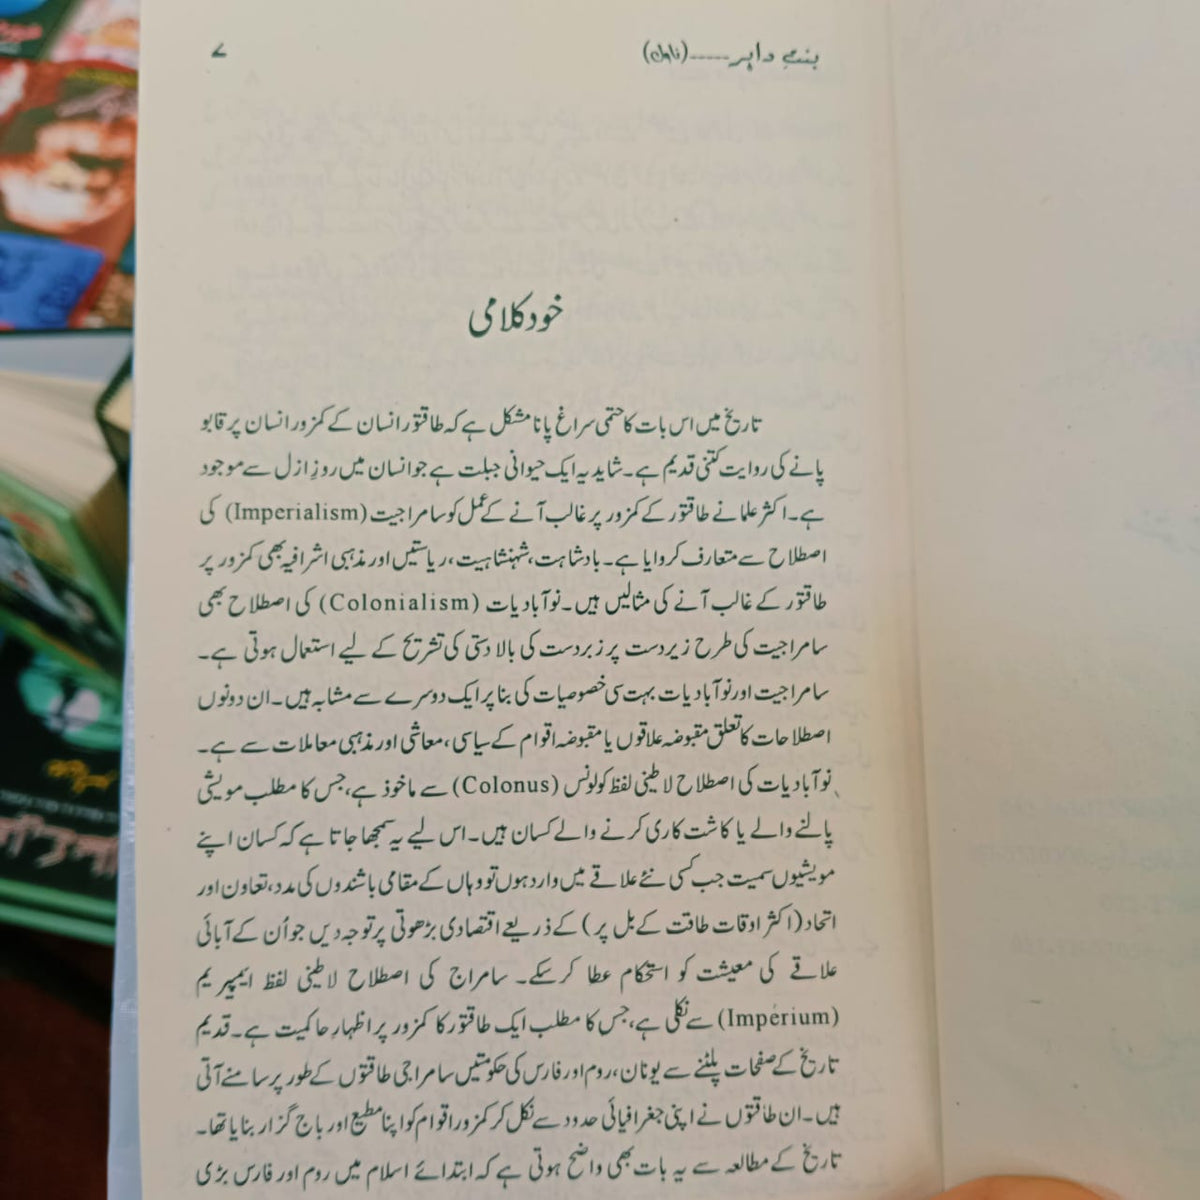 بنتِ داہر-----(ناول)
۷
خود کلامی
تاریخ میں اس بات کا حتمی سراغ پانا مشکل ہے کہ طاقتور انسان کے کمزور انسان پر قابو
پانے کی روایت کتنی قدیم ہے۔ شاید یہ ایک حیوانی جبلت ہے جو انسان میں روزِ ازل سے موجود
ہے۔ اکثر علما نے طاقتور کے کمزور پر غالب آنے کے عمل کو سامراجیت (Imperialism) کی
اصطلاح سے متعارف کروایا ہے۔ بادشاہت، شہنشاہیت، ریاستیں اور مذہبی اشرافیہ بھی کمزور پر
طاقتور کے غالب آنے کی مثالیں ہیں۔ نوآبادیات (Colonialism) کی اصطلاح بھی
سامراجیت کی طرح زیردست پر زبردست کی بالادستی کی تشریح کے لیے استعمال ہوتی ہے۔
سامراجیت اور نوآبادیات بہت سی خصوصیات کی بنا پر ایک دوسرے سے مشابہ ہیں۔ ان دونوں
اصطلاحات کا تعلق مقبوضہ علاقوں یا مقبوضہ اقوام کے سیاسی، معاشی اور مذہبی معاملات سے ہے۔
نوآبادیات کی اصطلاح لاطینی لفظ کولونس (Colonus) سے ماخوذ ہے، جس کا مطلب مویشی
پالنے والے یا کاشت کاری کرنے والے کسان ہیں۔ اس لیے یہ سمجھا جاتا ہے کہ کسان اپنے
مویشیوں سمیت جب کسی نئے علاقے میں وارد ہوں تو وہاں کے مقامی باشندوں کی مدد، تعاون اور
اتحاد (اکثر اوقات طاقت کے بل پر) کے ذریعے اقتصادی بڑھوتی پر توجہ دیں جو اُن کے آبائی
علاقے کی معیشت کو استحکام عطا کر سکے۔ سامراج کی اصطلاح لاطینی لفظ ایمپیریم
(Impérium) سے نکلی ہے، جس کا مطلب ایک طاقتور کا کمزور پر اظہارِ حاکمیت ہے۔ قدیم
تاریخ کے صفحات پلٹنے سے یونان، روم اور فارس کی حکومتیں سامراجی طاقتوں کے طور پر سامنے آتی
ہیں۔ ان طاقتوں نے اپنی جغرافیائی حدود سے نکل کر کمزور اقوام کو اپنا مطیع اور باج گزار بنایا تھا۔
تاریخ کے مطالعہ سے یہ بات بھی واضح ہوتی ہے کہ ابتدائے اسلام میں روم اور فارس بڑی